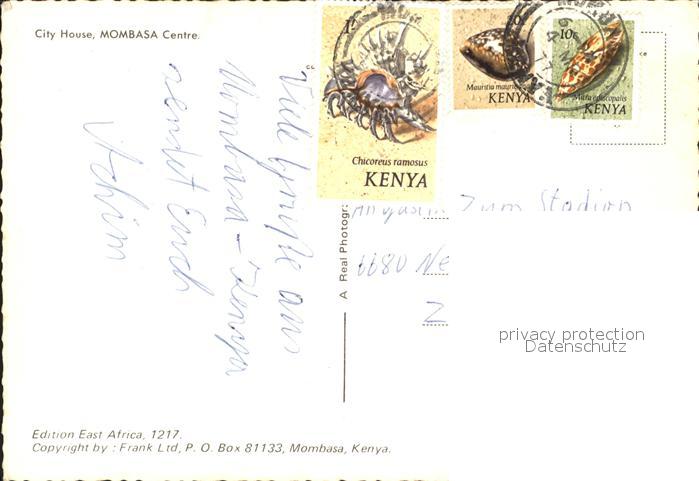 City House, MOMBASA Centre.
Viele Grüße aus
Mombasa - Kenya
sendet Euch
Achim
1/-
Chicoreus ramosus
KENYA
Mauritia
KENYA
10c
Mitra episcopalis
KENYA
A Real Photogr
Zum Stadion
6680 Ne
privacy protection
Datenschutz
Edition East Africa, 1217.
Copyright by : Frank Ltd, P. O. Box 81133, Mombasa, Kenya.